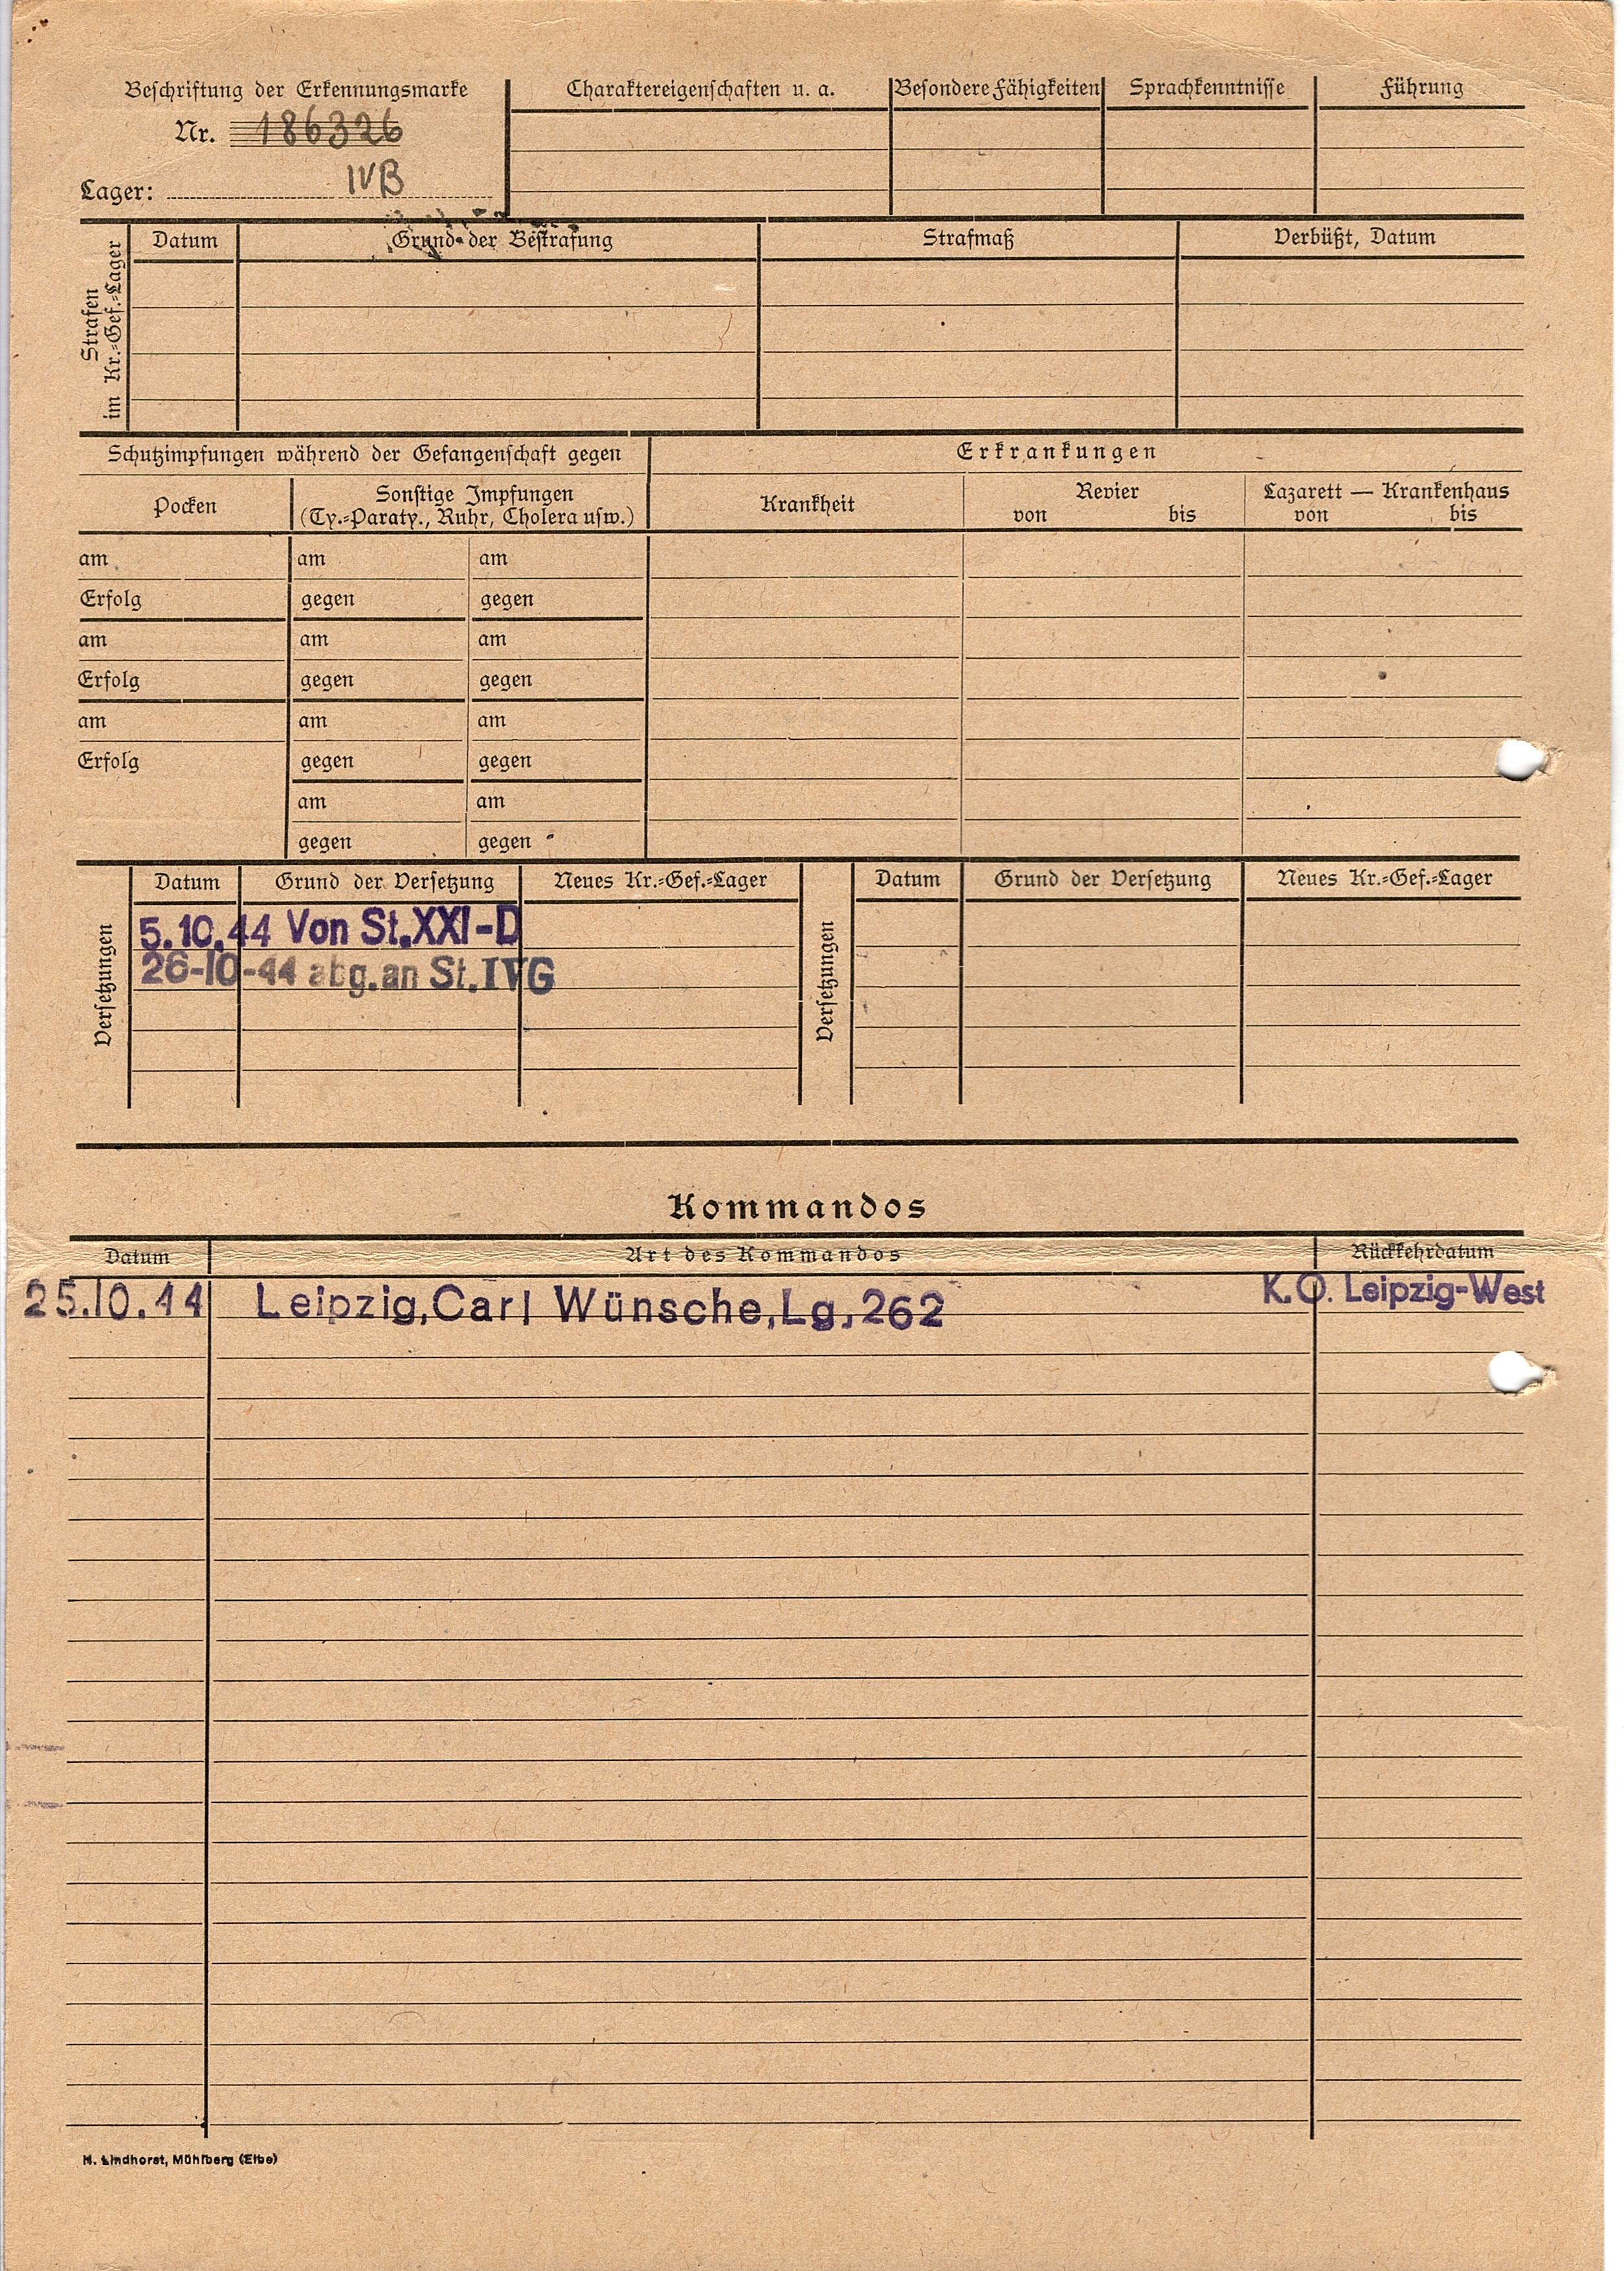 Beschriftung der Erkennungsmarke
Nr. 186326
Lager: IVB
Charaktereigenschaften u. a.
Besondere Fähigkeiten
Sprachkenntnisse
Führung
Strafen
im Kr.=Gef.=Lager
Datum
Grund der Bestrafung
Strafmaß
Verbüßt, Datum
Schutzimpfungen während der Gefangenschaft gegen
Erkrankungen
Pocken
Sonstige Impfungen
(Ty.=Paraty., Ruhr, Cholera usw.)
Krankheit
Revier
von bis
Lazarett — Krankenhaus
von bis
am am am
Erfolg gegen gegen
am am am
Erfolg gegen gegen
am am am
Erfolg gegen gegen
am am
gegen gegen
Versetzungen
Datum Grund der Versetzung Neues Kr.=Gef.=Lager
5.10.44 Von St.XXI-D
26-10-44 abg.an St.IVG
Versetzungen
Datum Grund der Versetzung Neues Kr.=Gef.=Lager
Kommandos
Datum Art des Kommandos Rückkehrdatum
25.10.44 Leipzig,Carl Wünsche,Lg,262 K.O. Leipzig-West
H. Lindhorst, Mühlberg (Elbe)